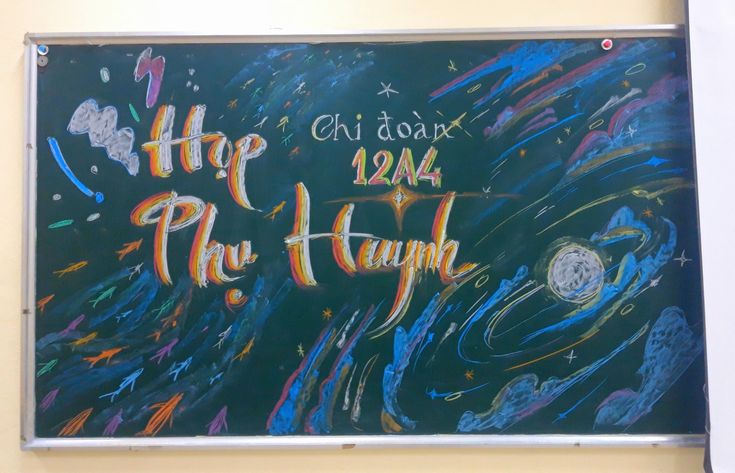 Họp
Chi đoàn
12A4
Phụ Huynh